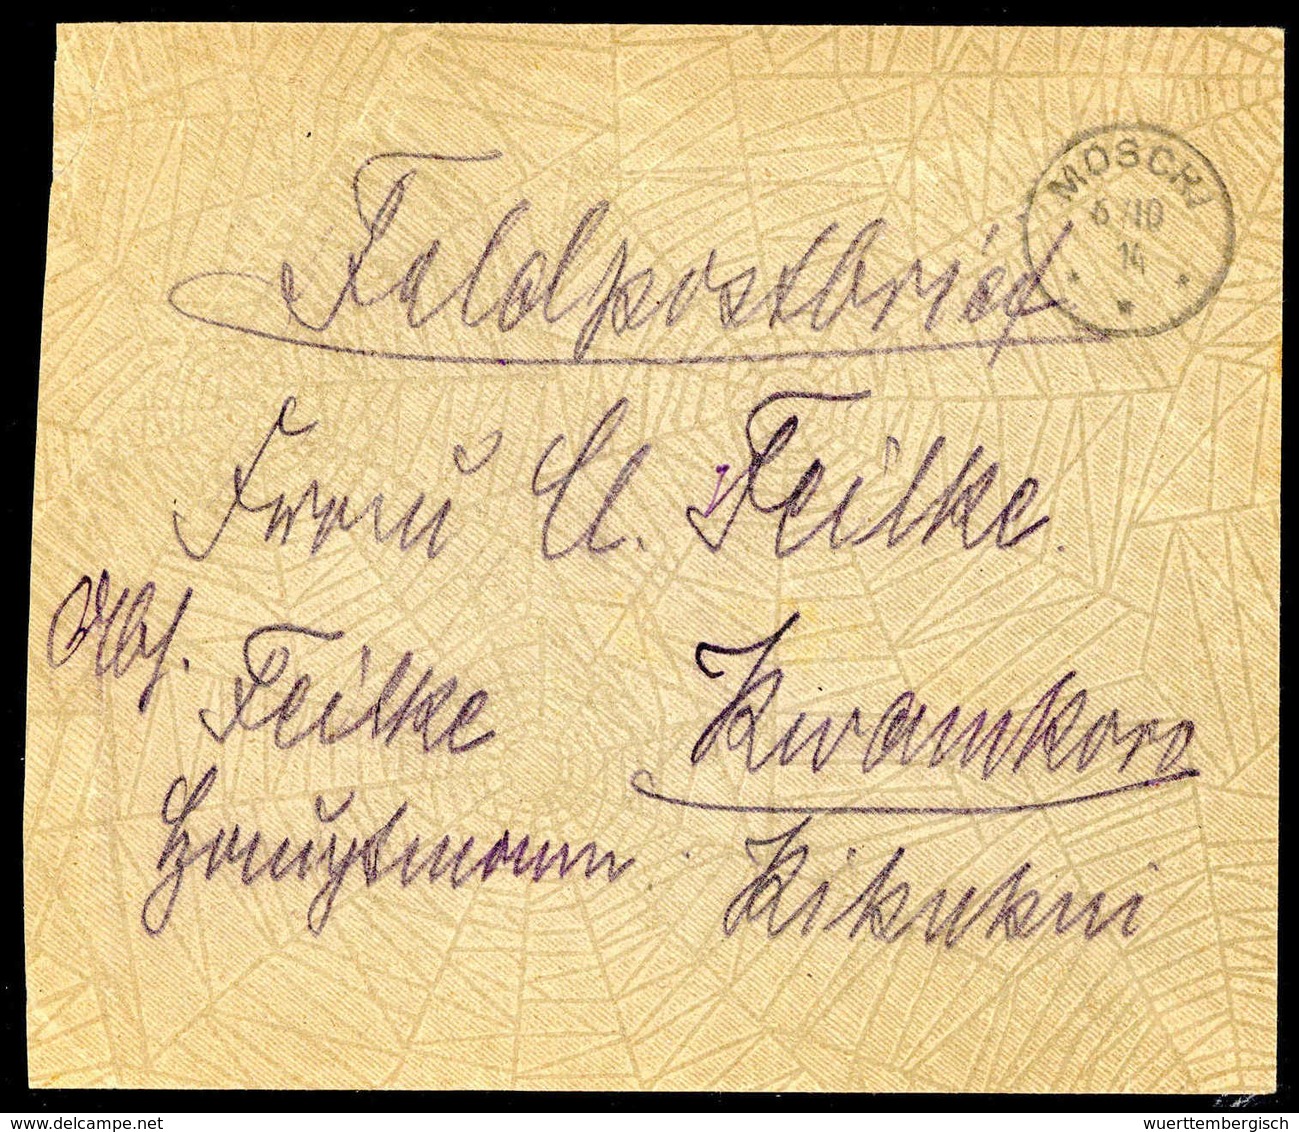 MOSCHI
6/10
14
Feldpostbrief
Frau Cl. Feilke.
Abs. Feilke
Hauptmann
Kwamkoro
Kikukui
delcampe.net
wuerttembergisch